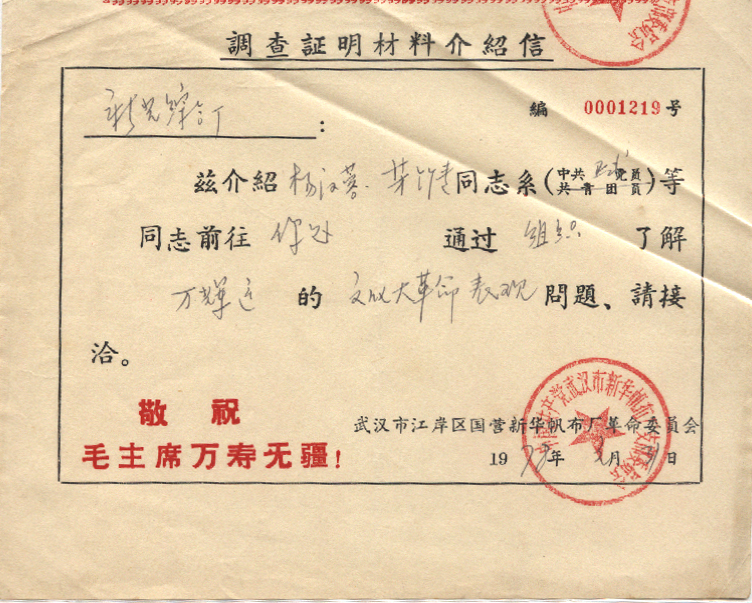 調查証明材料介紹信
編 0001219 号
:
兹介紹 杨汉蓉. 同志系(中共党員 共青团員)等
同志前往 你处 通过 组织 了解
万 的 文化大革命表现 問題、請接
洽。
敬祝
毛主席万寿无疆!
武汉市江岸区国营新华帆布厂革命委員会
19 年 月 日